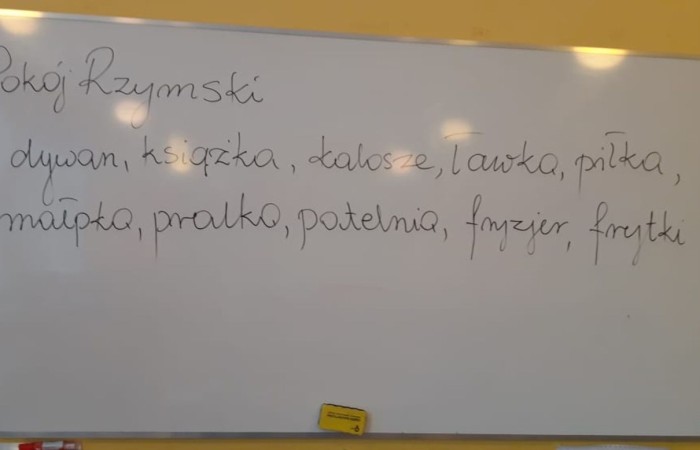 Pokój Rzymski
dywan, książka, kalosze, ławka, piłka,
małpka, pralka, patelnia, fryzjer, frytki